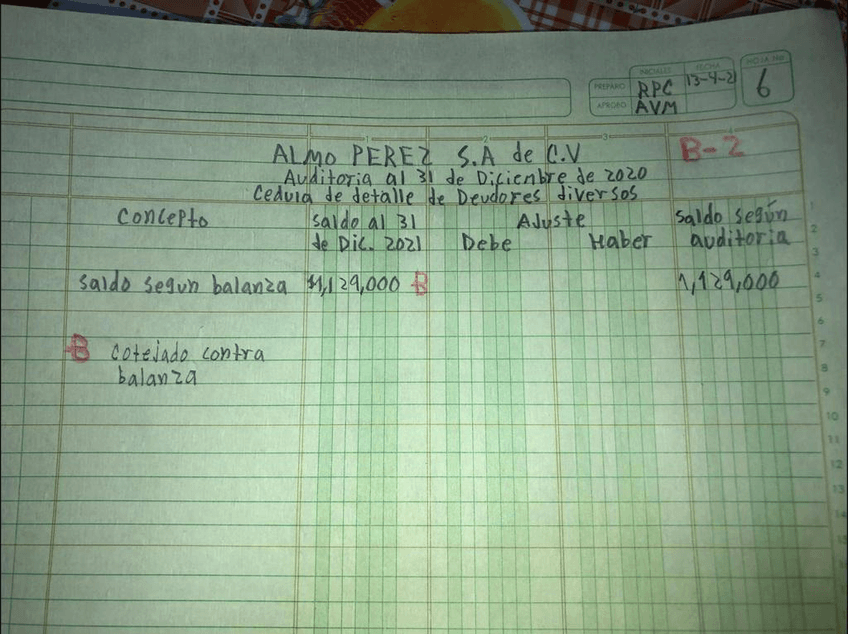 INICIALES FECHA HOJA No.
PREPARO RPC 13-4-21 6
APROBO AVM
1 2 3
ALMO PEREZ S.A de C.V B-2
Auditoria al 31 de Diciembre de 2020
Cedula de detalle de Deudores diversos
Concepto saldo al 31 Ajuste saldo según
de Dic. 2021 Debe Haber auditoria
saldo segun balanza $1,129,000 B 1,129,000
B cotejado contra
balanza
1
2
3
4
5
6
7
8
9
10
11
12
13
14